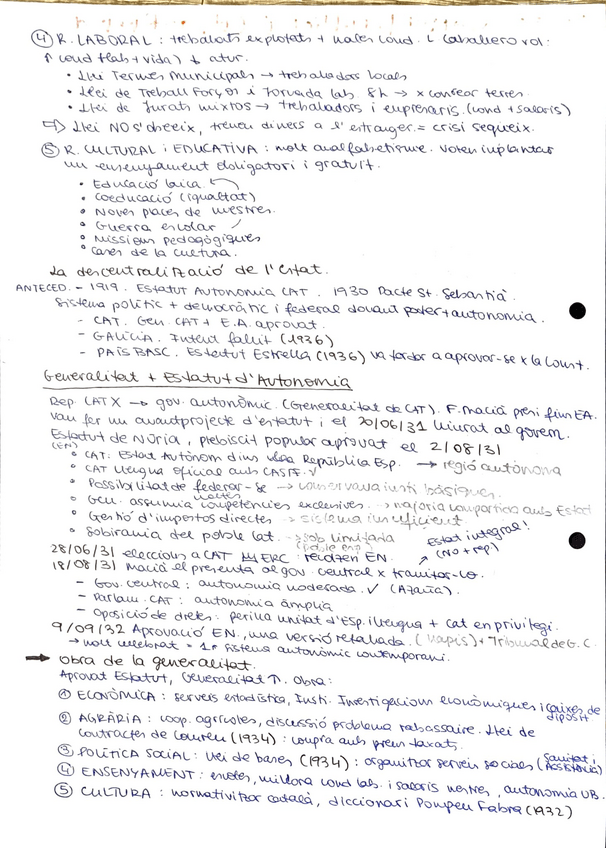 ④ R. LABORAL : treballats explotats + males cond. i Caballero vol:
↑ cond treb + vida) ↓ atur.
• Llei Termes Municipals → treballadors locals
• Llei de Treball Forçós i Jornada lab. 8h → x conrear terres
• Llei de Jurats mixtos → treballadors i empresaris. (cond + salaris)
⇨ Llei NO s'obeeix, treuen diners a l'estranger = crisi segueix.
⑤ R. CULTURAL i EDUCATIVA : molt analfabetisme. Volen implantar
un ensenyament obligatori i gratuït.
• Educació laica.
• Coeducació (igualtat)
• Noves places de mestres.
• Guerra escolar
• Missions pedagògiques
• Cases de la cultura.
La descentralització de l'Estat.
ANTECED. - 1919. Estatut Autonomia CAT. 1930 Pacte St. Sebastià.
Sistema polític + democràtic i federal donant poder + autonomia.
- CAT. Gen. CAT + E.A. aprovat.
- GALÍCIA. Intent fallit (1936)
- PAÍS BASC. Estatut Estrella (1936) va tardar a aprovar-se x la Const.
Generalitat + Estatut d'Autonomia
Rep. CAT X → gov. autonòmic. (Generalitat de CAT). F. Macià presi fins EA.
Van fer un avantprojecte d'estatut i el 20/06/31 lliurat al govern.
Estatut de Núria, plebiscit popular aprovat el 2/08/31
(EN)
• CAT: Estat Autònom dins una República Esp. → regió autònoma
• CAT llengua oficial amb CAST. ✓
• Possibilitat de federar-se → conservava insti bàsiques.
• Gen. assumia moltes competències exclusives → majoria compartida amb Estat
• Gestió d'impostos directes → sistema insuficient.
• Sobirania del poble cat. → sob limitada (poble esp) Estat integral! (NO + rep)
28/06/31 eleccions a CAT ERC : redacten EN.
18/08/31 Macià el presenta al gov. central x tramitar-lo.
- Gov. central : autonomia moderada. ✓ (Azaña).
- Parlam. CAT : autonomia àmplia
- Oposició de dretes : perilla unitat d'Esp. i llengua + cat en privilegi.
9/09/32 Aprovació EN, una versió retallada. + Tribunal de G. C.
→ molt celebrat = 1r sistema autonòmic contemporani.
➡ Obra de la generalitat.
Aprovat Estatut, Generalitat ↑. Obra:
① ECONÒMICA : serveis estadística, Insti. Investigacions econòmiques i caixes de dipòsit.
② AGRÀRIA : coop. agrícoles, discussió problema rabassaire. Llei de
Contractes de Conreu (1934) : compra amb preu taxats.
③ POLÍTICA SOCIAL : Llei de bases (1934) : organitzar serveis socials (Sanitat i Assistència)
④ ENSENYAMENT : escoles, millora cond lab. i salaris mestres, autonomia UB.
⑤ CULTURA : normativitzar català, diccionari Pompeu Fabra (1932)